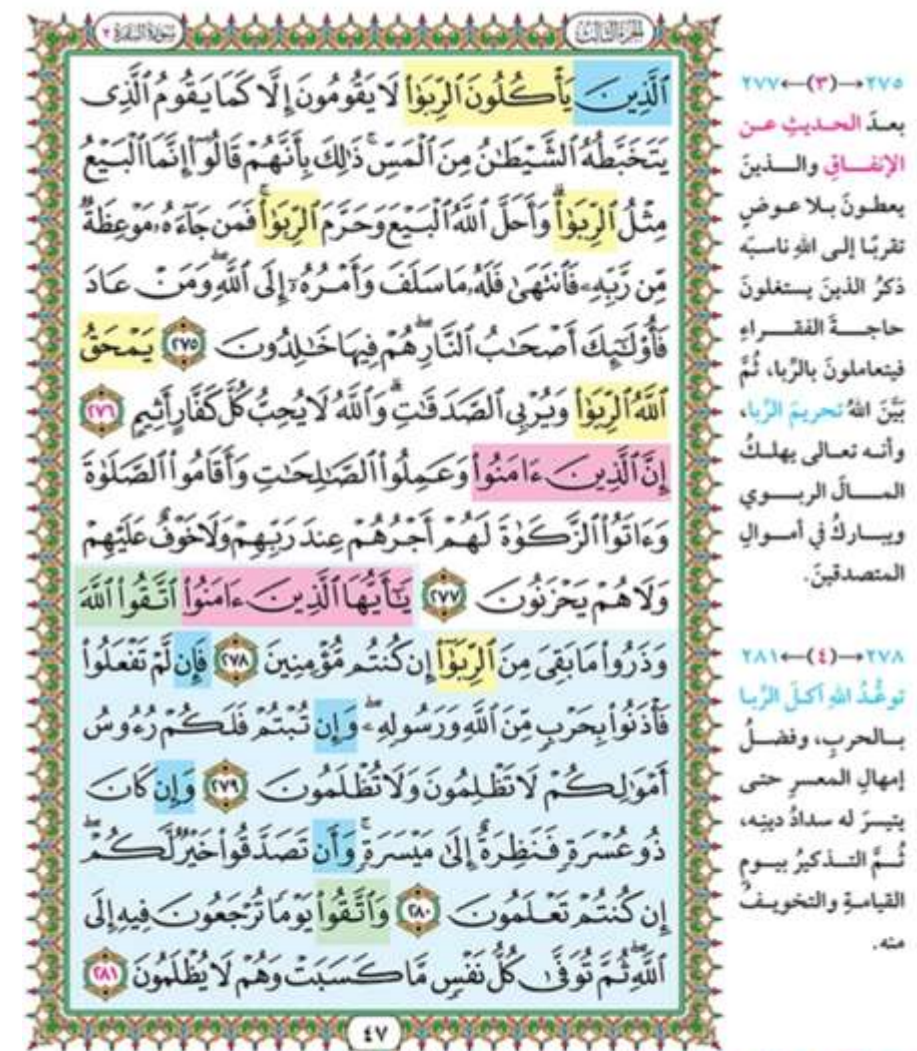 الجزء الثالث
سورة البقرة ٢
ٱلَّذِينَ يَأْكُلُونَ ٱلرِّبَوٰا۟ لَا يَقُومُونَ إِلَّا كَمَا يَقُومُ ٱلَّذِى
يَتَخَبَّطُهُ ٱلشَّيْطَٰنُ مِنَ ٱلْمَسِّ ۚ ذَٰلِكَ بِأَنَّهُمْ قَالُوٓا۟ إِنَّمَا ٱلْبَيْعُ
مِثْلُ ٱلرِّبَوٰا۟ ۗ وَأَحَلَّ ٱللَّهُ ٱلْبَيْعَ وَحَرَّمَ ٱلرِّبَوٰا۟ ۚ فَمَن جَآءَهُۥ مَوْعِظَةٌ
مِّن رَّبِّهِۦ فَٱنتَهَىٰ فَلَهُۥ مَا سَلَفَ وَأَمْرُهُۥٓ إِلَى ٱللَّهِ ۖ وَمَنْ عَادَ
فَأُو۟لَٰٓئِكَ أَصْحَٰبُ ٱلنَّارِ ۖ هُمْ فِيهَا خَٰلِدُونَ ٢٧٥ يَمْحَقُ
ٱللَّهُ ٱلرِّبَوٰا۟ وَيُرْبِى ٱلصَّدَقَٰتِ ۗ وَٱللَّهُ لَا يُحِبُّ كُلَّ كَفَّارٍ أَثِيمٍ ٢٧٦
إِنَّ ٱلَّذِينَ ءَامَنُوا۟ وَعَمِلُوا۟ ٱلصَّٰلِحَٰتِ وَأَقَامُوا۟ ٱلصَّلَوٰةَ
وَءَاتَوُا۟ ٱلزَّكَوٰةَ لَهُمْ أَجْرُهُمْ عِندَ رَبِّهِمْ وَلَا خَوْفٌ عَلَيْهِمْ
وَلَا هُمْ يَحْزَنُونَ ٢٧٧ يَٰٓأَيُّهَا ٱلَّذِينَ ءَامَنُوا۟ ٱتَّقُوا۟ ٱللَّهَ
وَذَرُوا۟ مَا بَقِىَ مِنَ ٱلرِّبَوٰٓا۟ إِن كُنتُم مُّؤْمِنِينَ ٢٧٨ فَإِن لَّمْ تَفْعَلُوا۟
فَأْذَنُوا۟ بِحَرْبٍ مِّنَ ٱللَّهِ وَرَسُولِهِۦ ۖ وَإِن تُبْتُمْ فَلَكُمْ رُءُوسُ
أَمْوَٰلِكُمْ لَا تَظْلِمُونَ وَلَا تُظْلَمُونَ ٢٧٩ وَإِن كَانَ
ذُو عُسْرَةٍ فَنَظِرَةٌ إِلَىٰ مَيْسَرَةٍ ۚ وَأَن تَصَدَّقُوا۟ خَيْرٌ لَّكُمْ ۖ
إِن كُنتُمْ تَعْلَمُونَ ٢٨٠ وَٱتَّقُوا۟ يَوْمًا تُرْجَعُونَ فِيهِ إِلَى
ٱللَّهِ ۖ ثُمَّ تُوَفَّىٰ كُلُّ نَفْسٍ مَّا كَسَبَتْ وَهُمْ لَا يُظْلَمُونَ ٢٨١
٤٧
٢٧٥→(٣)←٢٧٧
بعدَ الحديثِ عن
الإنفاقِ والذينَ
يعطونَ بلا عوضٍ
تقربًا إلى اللهِ ناسبَه
ذكرُ الذينَ يستغلونَ
حاجةَ الفقراءِ
فيتعاملونَ بالرِّبا، ثُمَّ
بَيَّنَ اللهُ تحريمَ الرِّبا،
وأنه تعالى يهلكُ
المالَ الربوي
ويباركُ في أموالِ
المتصدقينَ.
٢٧٨→(٤)←٢٨١
توعُّدُ اللهِ آكلَ الرِّبا
بالحربِ، وفضلُ
إمهالِ المعسرِ حتى
يتيسرَ له سدادُ دينِه،
ثُمَّ التذكيرُ بيومِ
القيامةِ والتخويفُ
منه.